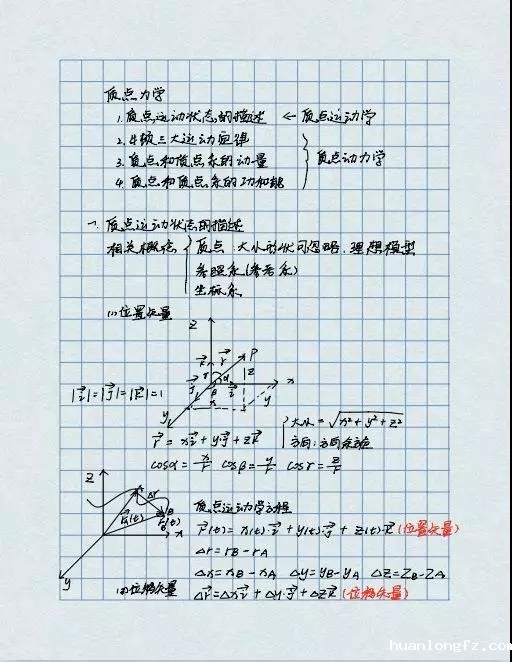 质点力学
1. 质点运动状态的描述 ← 质点运动学
2. 牛顿三大运动定律
3. 质点和质点系的动量
4. 质点和质点系的功和能
质点动力学
一、质点运动状态的描述
相关概念 { 质点：大小形状可忽略，理想模型
参照系(参考系)
坐标系
(1)位置矢量
z
P
x
y
|i⃗|=|j⃗|=|k⃗|=1
r⃗ = xi⃗+yj⃗+zk⃗
大小 = √x²+y²+z²
方向：方向余弦
cosα=x/r cosβ=y/r cosγ=z/r
z
A
Δr
B
r(t)
r(t)
x
y
质点运动学方程
r⃗(t)=x(t)·i⃗+y(t)·j⃗+z(t)·k⃗(位置矢量)
Δr=rB-rA
Δx=xB-xA Δy=yB-yA Δz=zB-zA
(2)位移矢量
Δr⃗=Δxi⃗+Δy·j⃗+Δzk⃗(位移矢量)
huanlongfz.com